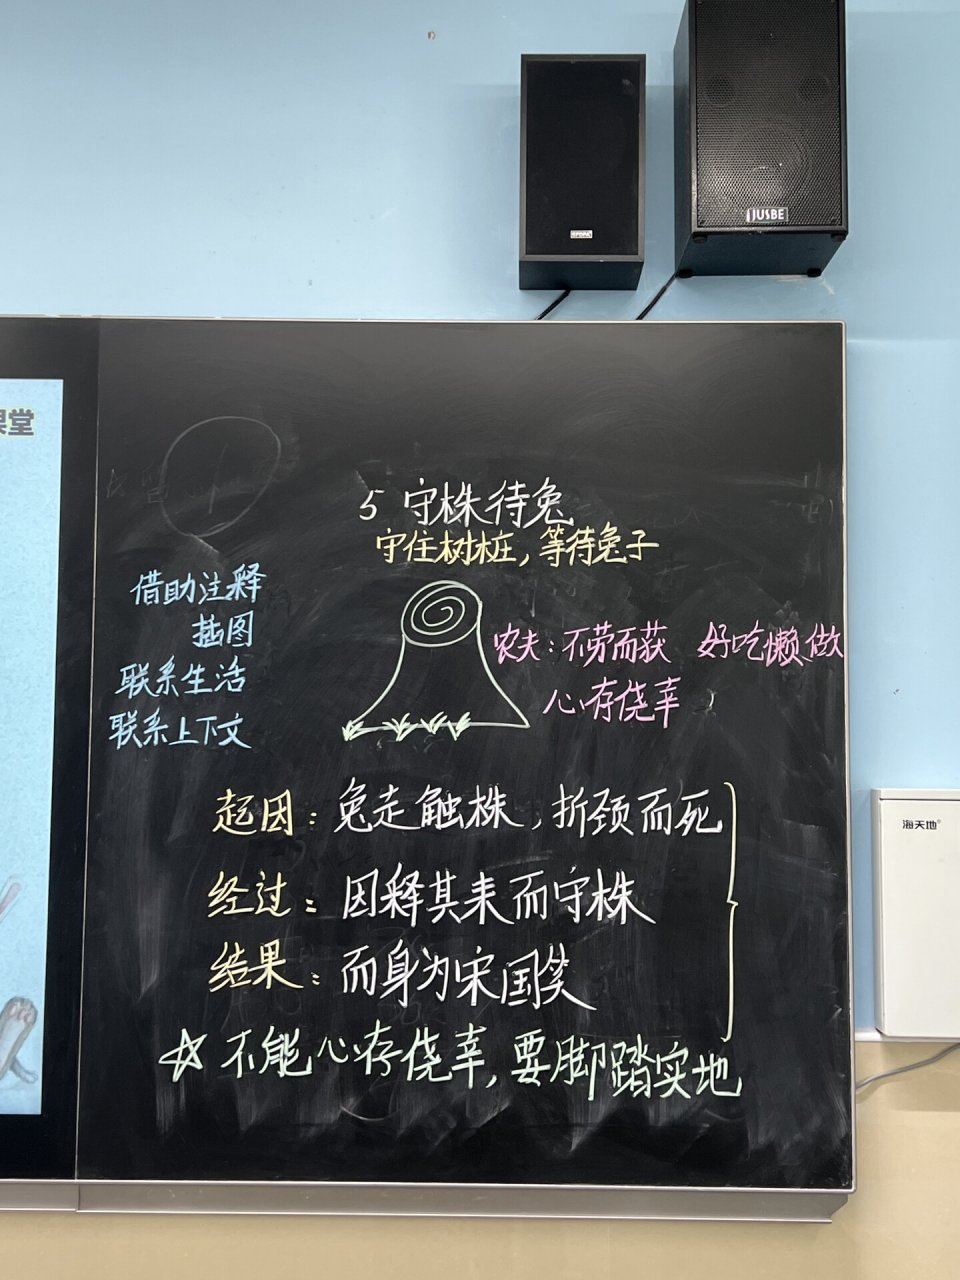 JUSBE
课堂
5 守株待兔
守住树桩，等待兔子
借助注释
插图
联系生活
联系上下文
农夫：不劳而获 好吃懒做
心存侥幸
起因：兔走触株，折颈而死
经过：因释其耒而守株
结果：而身为宋国笑
☆不能心存侥幸，要脚踏实地
海天地